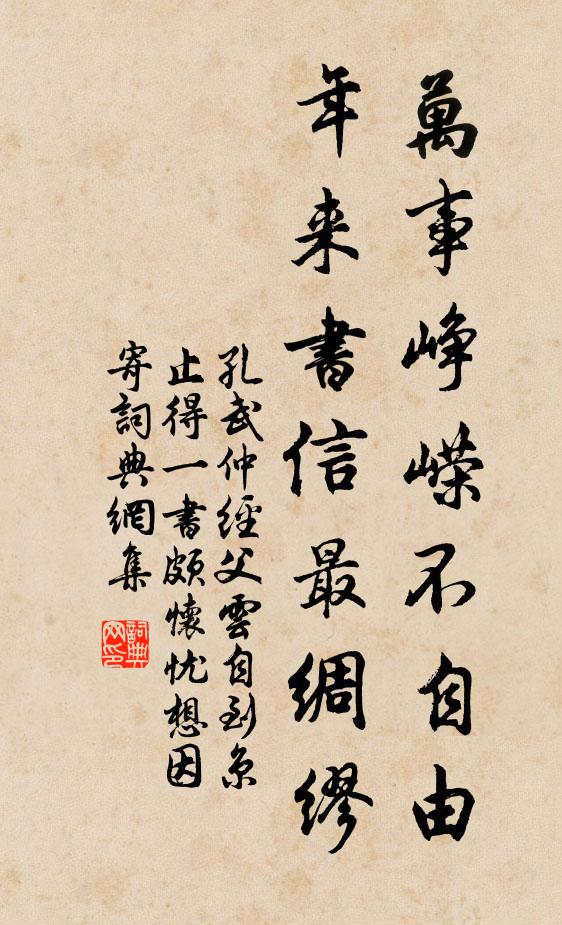 萬事崢嶸不自由
年来書信最綢繆
孔武仲經父雲自到京
止得一書頗懷忧想因
寄詞典網集
詞典网印